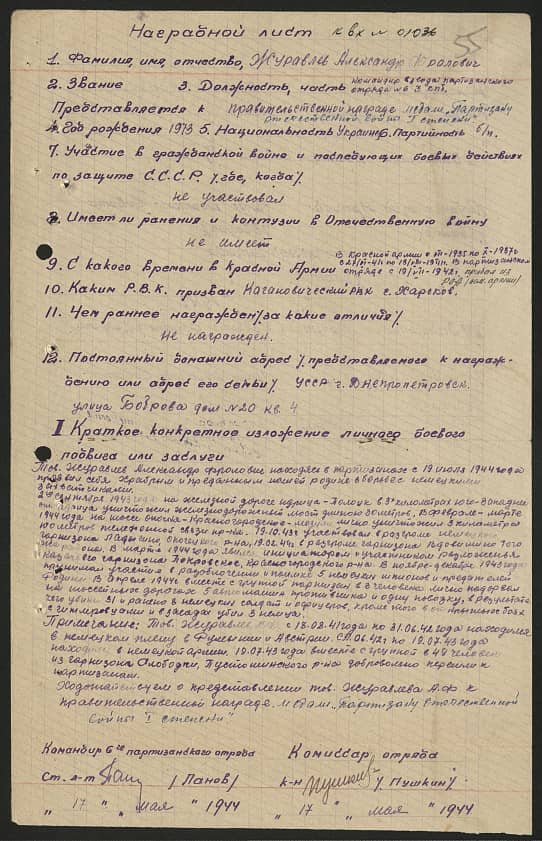 Наградной лист к вх № 01036
55
1. Фамилия, имя, отчество, Журавлев Александр Фролович
2. Звание 3. Должность, часть командир взвода партизанского
отряда № 6 3
Представляется к правительственной награде медали „Партизану
отечественной войны I степени"
4. Год рождения 1913 5. Национальность Украинец 6. Партийность б/п.
7. Участие в гражданской войне и последующих боевых действиях
по защите С.С.С.Р. /где, когда/
не участвовал
8. Имеет ли ранения и контузии в Отечественную войну
не имеет
9. С какого времени в Красной Армии в Красной армии с 1935 по X-1937г
по 18/VIII-1941г. В партизанском
отряде с 19/VII-1943г
10. Каким Р.В.К. призван Кагановический РВК г. Харьков.
11. Чем раннее награжден /за какие отличия/.
Не награжден.
12. Постоянный домашний адрес /представляемого к награж-
дению или адрес его семьи/. УССР г. Днепропетровск
улица Боброва дом № 20 кв. 4
I Краткое конкретное изложение личного боевого
подвига или заслуги
Тов. Журавлев Александр Фролович находясь в партизанах с 19 июля 1944 года
проявил себя храбрым и преданным нашей родине в борьбе с немецкими
захватчиками.
1943 года на железной дороге Идрица-Полоцк в 3х километрах юго-западнее
Идрица уничтожил железнодорожный мост длиною 30 метров, В феврале-марте
1944 года на шоссе Опочка-Красногородское лично уничтожил 3 километра
100 метров телефонной связи пр-ка. 19.10.43г участвовал в разгроме немецкого
гарнизона р-на, 19.02.44г в разгроме гарнизона того
же района. В марте 1944 года инициатором и участником разложения
гарнизона Покровское, Красногородского р-на. В ноябре-декабре 1943 года
принимал участие в разоблачении и поимке 5 немецких шпионов и предателей
Родины. В апреле 1944г вместе с группой партизан в 8 человек лично подорвал
на шоссейных дорогах 5 автомашин противника и одну повозку, в результате
чего убито 31 и ранено 8 немецких солдат и офицеров, кроме того в
с гитлеровцами и в засадах убил 3 немца.
Примечание: Тов. Журавлев А.Ф. с 18.08.41 года по 31.06.42 года находился
в немецком плену в Румынии и Австрии. С 1.06.42г по 19.07.43 года
находился в немецкой армии. 19.07.43 года вместе с группой в 48 человек
из гарнизона Слободки, Пустошинского р-на добровольно перешли к
партизанам.
Ходатайствуем о представлении тов. Журавлева А.Ф к
правительственной награде медали „Партизану Отечественной
войны I степени"
Командир 6го партизанского отряда Комиссар отряда
ст. л-т /Панов/ к-н /Пушкин/
„ 17 „ мая „ 1944 „ 17 „ мая „ 1944